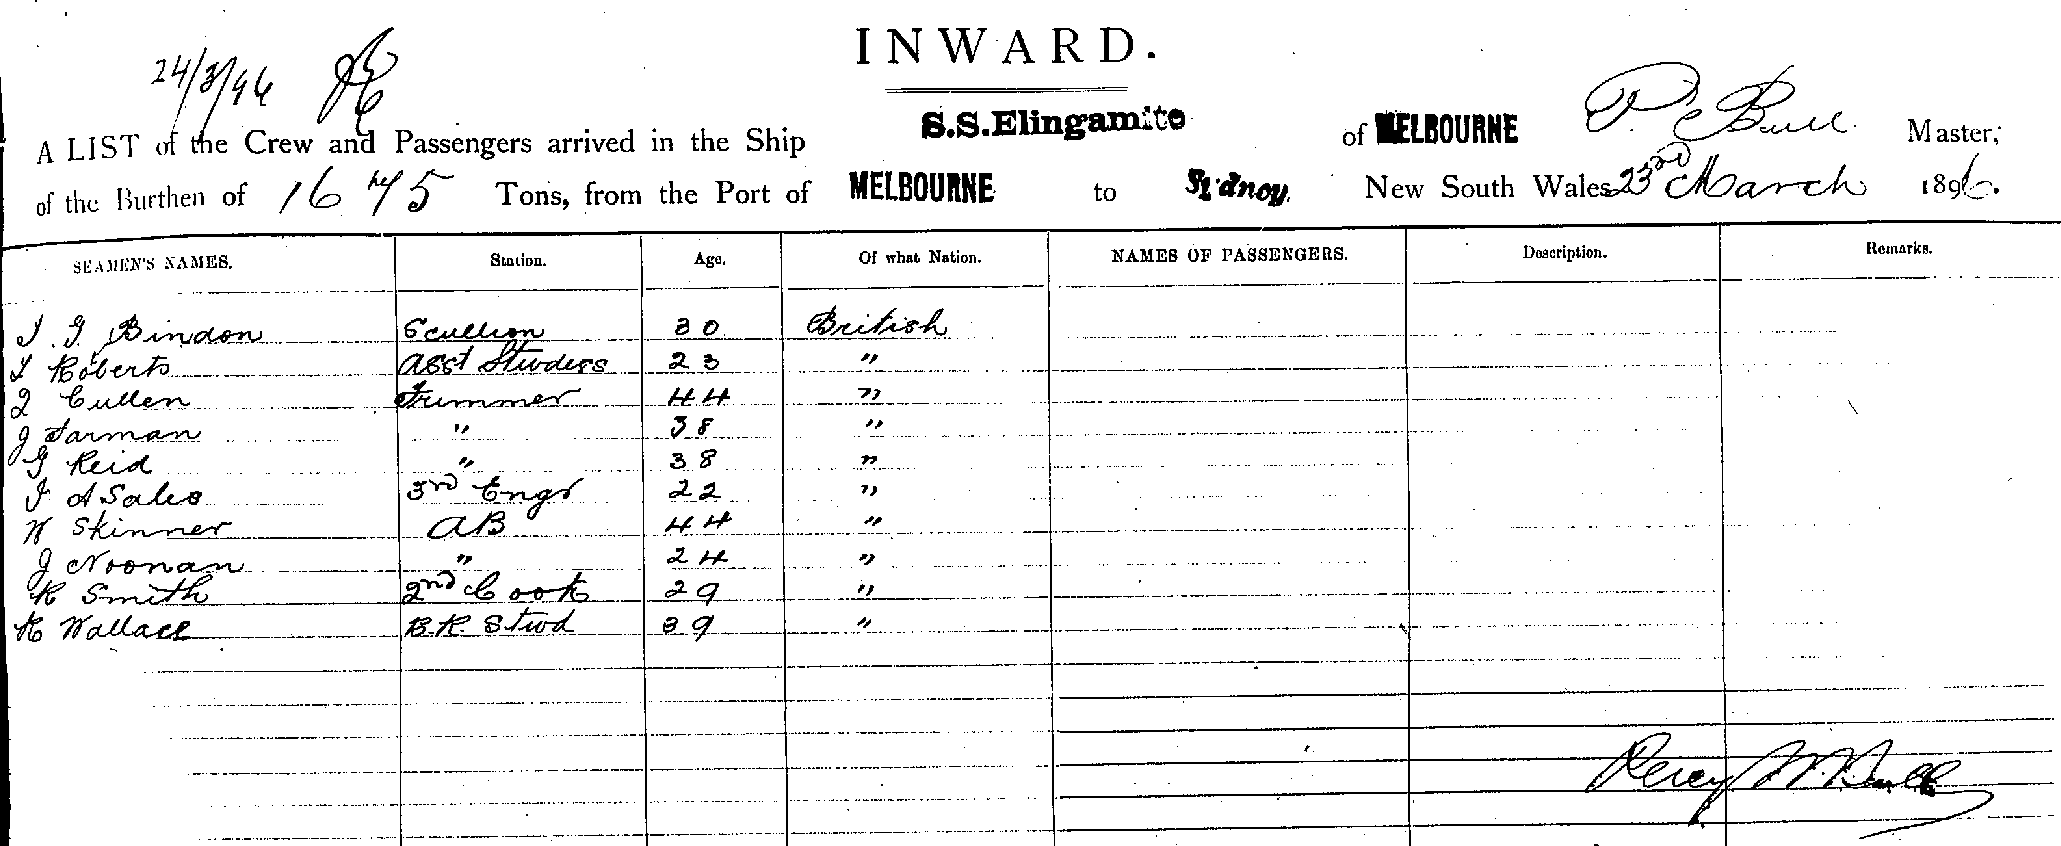 INWARD.
24/3/96
A LIST of the Crew and Passengers arrived in the Ship S.S.Elingamite of MELBOURNE P. Bull Master,
of the Burthen of 1675 Tons, from the Port of MELBOURNE to Sydney. New South Wales 23rd March 1896.
SEAMEN'S NAMES. Station. Age. Of what Nation. NAMES OF PASSENGERS. Description. Remarks.
J. G. Bindon Scullion 30 British
Roberts Asst Stwdess 23 "
Cullen Trimmer 44 "
J Jarman " 38 "
G Reid " 38 "
J A Sales 3rd Engr 22 "
W Skinner AB 44 "
J Noonan " 24 "
R Smith 2nd Cook 29 "
R Wallace B.R. Stwd 39 "
Percy W. Bull